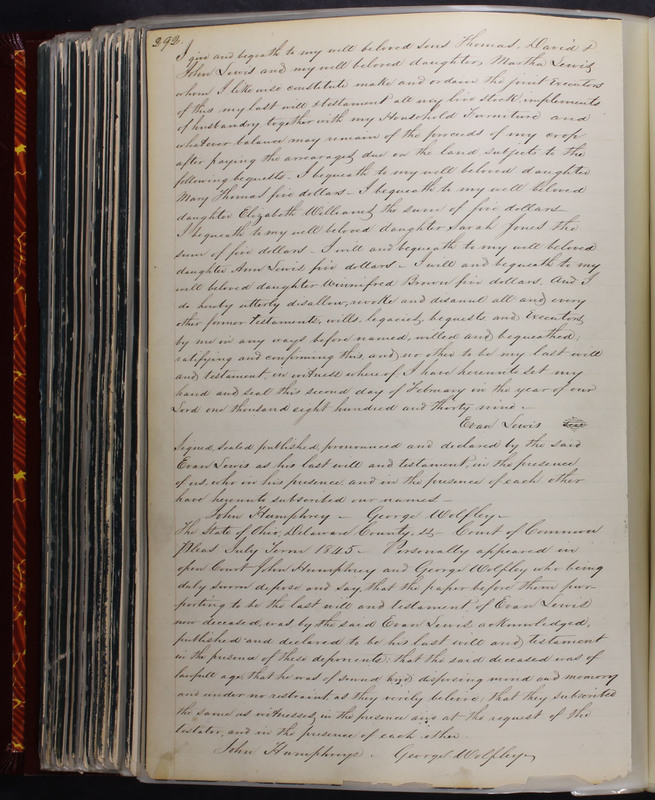 292.
I give and bequeath to my well beloved sons Thomas, David &
John Lewis and my well beloved daughter, Martha Lewis,
whom I likewise constitute make and ordain the joint Executors
of this my last will & testament all my live stock, implements
of husbandry together with my Household Furniture and
whatever balance may remain of the proceeds of my crop
after paying the arrearages due on the land, subject to the
following bequests – I bequeath to my well beloved daughter
Mary Thomas five dollars – I bequeath to my well beloved
daughter Elizabeth Williams, the sum of five dollars –
I bequeath to my well beloved daughter Sarah Jones the
sum of five dollars – I will and bequeath to my well beloved
daughter Ann Lewis five dollars – I will and bequeath to my
well beloved daughter Winnifred Brown five dollars. And I
do hereby utterly disallow, revoke and disannul all and every
other former testaments, wills, legacies, bequests and Executors,
by me in any ways before named, willed and bequeathed;
ratifying and confirming this, and no other to be my last will
and testament, in witness whereof I have hereunto set my
hand and seal this second day of February in the year of our
Lord one thousand eight hundred and thirty nine –
Evan Lewis seal
Signed, sealed published, pronounced and declared by the said
Evan Lewis as his last will and testament, in the presence
of us, who in his presence and in the presence of each other
have hereunto subscribed our names –
John Humphrey – George Wolfley –
The State of Ohio, Delaware County, ss – Court of Common
Pleas July Term 1845 – Personally appeared in
open Court John Humphrey and George Wolfley who being
duly sworn depose and say, that the paper before them pur-
porting to be the last will and testament of Evan Lewis
now deceased, was by the said Evan Lewis acknowledged,
published and declared to be his last will and testament
in the presence of these deponents: that the said deceased was of
lawful age, that he was of sound and disposing mind and memory
and under no restraint as they verily believe; that they subscribed
the same as witnesses, in the presence and at the request of the
testator, and in the presence of each other
John Humphreys – George Wolfley –